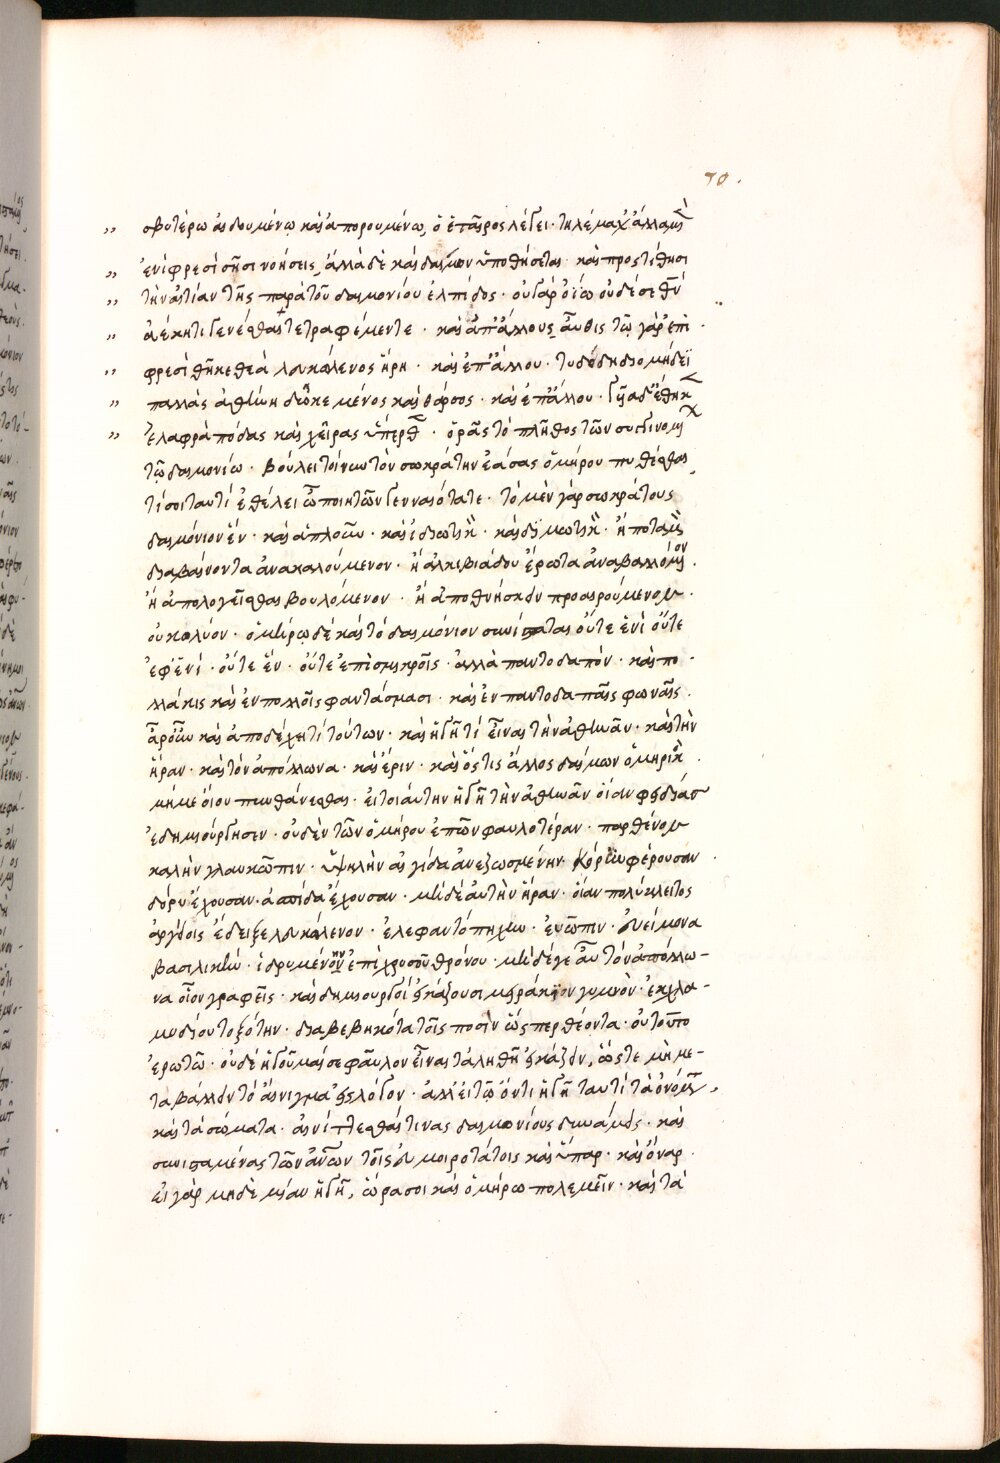 70.
σβυτέρω αἰδουμένῳ καὶ ἀπορουμένῳ, ὁ ἑταῖρος λέγει· τηλέμαχ' ἄλλα μὲν
ἐνὶ φρεσὶ σῇσι νοήσεις, ἄλλα δὲ καὶ δαίμων ὑποθήσεται· καὶ προστίθησι
τὴν αἰτίαν τῆς παρὰ τοῦ δαιμονίου ἐλπίδος· οὐ γὰρ ὀίω οὐδέ σε θεῶν
ἀέκητι γενέσθαι τετραφέμεν τε· καὶ ἀπ' ἄλλους αὖθις τῷ γὰρ ἐπὶ
φρεσὶ θῆκε θεὰ λευκώλενος ἥρη· καὶ ἐπ' ἄλλου· τυδείδη διομήδεϊ
παλλὰς ἀθήνη δῶκε μένος καὶ θάρσος· καὶ ἐπ' ἄλλου· γυῖα δ' ἔθηκεν
ἐλαφρὰ πόδας καὶ χεῖρας ὕπερθεν· ὁρᾷς τὸ πλῆθος τῶν συγγινομένων
τῷ δαιμονίῳ· βούλει τοίνυν τὸν σωκράτην ἐάσας ὁμήρου πυθέσθαι
τί σοι ταυτὶ ἐθέλει ὦ ποιητῶν γενναιότατε· τὸ μὲν γὰρ σωκράτους
δαιμόνιον ἕν· καὶ ἁπλοῦν· καὶ ἰδιωτικὸν· καὶ δημωτικὸν· ἢ ποταμὸν
διαβαίνοντα ἀνακαλούμενον· ἢ ἀλκιβιάδου ἔρωτα ἀναβαλλόμενον.
ἢ ἀπολογεῖσθαι βουλόμενον· ἢ ἀποθνήσκειν προαιρούμενον.
οὐ κωλύον· ὁμήρῳ δὲ καὶ τὸ δαιμόνιον συνίσταται οὔτε ἑνὶ οὔτε
ἐφ' ἑνὶ· οὔτε ἕν· οὔτε ἐπὶ σμικροῖς· ἀλλὰ παντοδαπόν· καὶ πο-
λλάκις καὶ ἐν πολλοῖς φαντάσμασι· καὶ ἐν παντοδαπαῖς φωναῖς.
ἆρ' οὖν καὶ ἀποδέχῃ τί τούτων· καὶ ἡγῇ τί εἶναι τὴν ἀθηνᾶν· καὶ τὴν
ἥραν· καὶ τὸν ἀπόλλωνα· καὶ ἔριν· καὶ ὅστις ἄλλος δαίμων ὁμηρικὸς.
μή με οἴου πυνθάνεσθαι· εἰ τοιαύτην ἡγῇ τὴν ἀθηνᾶν οἵαν φειδίας
ἐδημιούργησεν· οὐδὲν τῶν ὁμήρου ἐπῶν φαυλοτέραν· παρθένον
καλὴν γλαυκῶπιν· ὑψηλὴν αἰγίδα ἀνεζωσμένην κόρυν φέρουσαν·
δόρυ ἔχουσαν· ἀσπίδα ἔχουσαν· μηδὲ αὐτὴν ἥραν· οἵαν πολύκλειτος
ἀργείοις ἔδειξε λευκώλενον· ἐλεφαντόπηχυν· εὐῶπιν· εὐείμονα
βασιλικήν· ἱδρυμένον ἐπὶ χρυσοῦ θρόνου· μηδέ γε αὖ τὸν ἀπόλλω-
να οἷον γραφεῖς· καὶ δημιουργοὶ εἰκάζουσι μειράκιον γυμνὸν· ἐκ χλα-
μυδίου τοξότην· διαβεβηκότα τοῖς ποσὶν ὥσπερ θέοντα· οὐ τοῦτο
ἐρωτῶ· οὐδὲ ἡγοῦμαί σε φαῦλον εἶναι τἀληθῆ εἰκάζειν, ὥστε μὴ με-
ταβάλλειν τὸ αἴνιγμα εἰς λόγον· ἀλλ' εἰ τῷ ὄντι ἡγῇ ταυτὶ τὰ ὀνόματα,
καὶ τὰ σώματα· αἰνίττεσθαί τινας δαιμονίους δυνάμεις· καὶ
συνισταμένας τῶν ἀνθρώπων τοῖς εὐμοιροτάτοις καὶ ὕπαρ· καὶ ὄναρ·
εἰ γὰρ μηδὲ μίαν ἡγῇ, ὥρα σοι καὶ ὁμήρῳ πολεμεῖν· καὶ τὰ